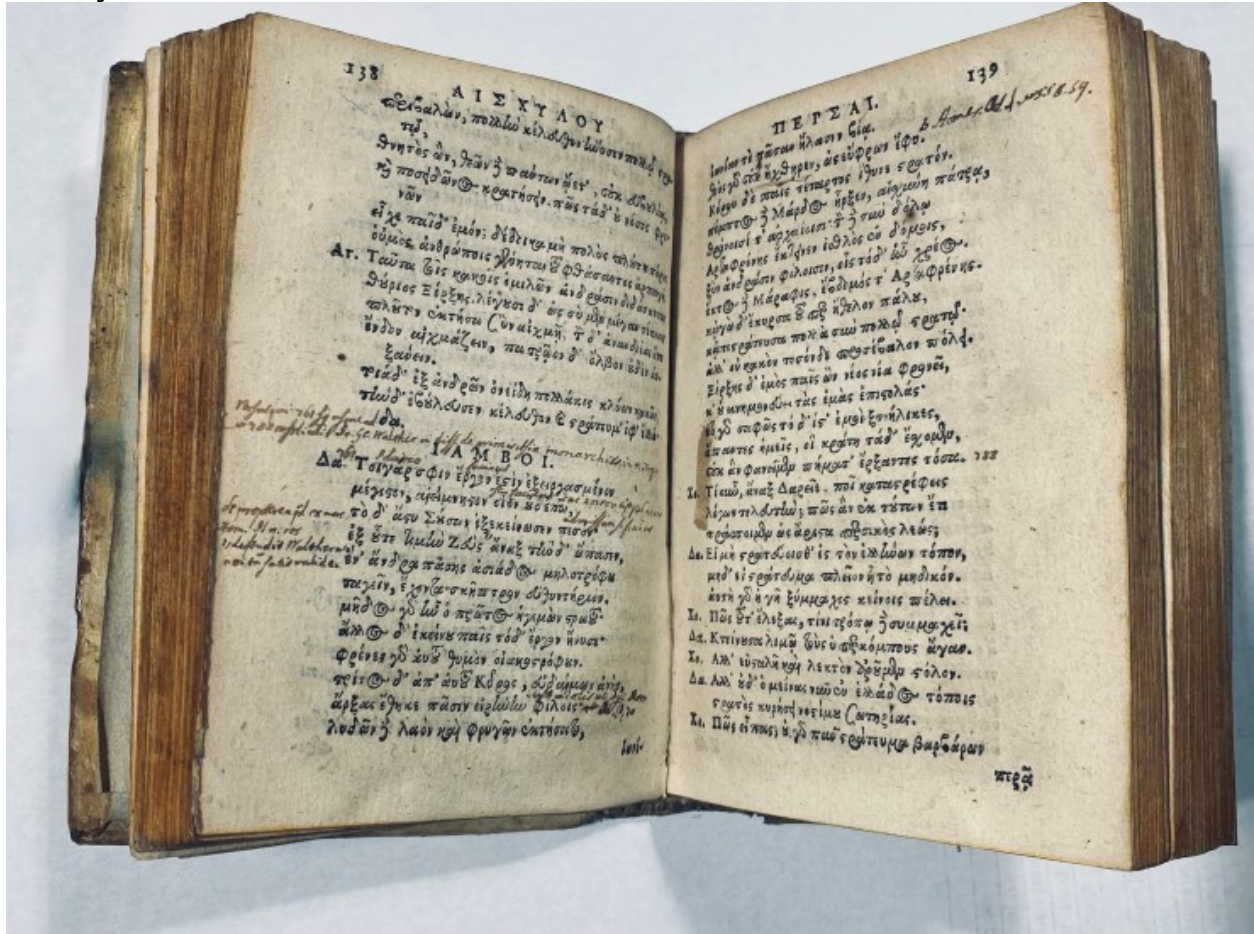 138
ΑΙΣΧΥΛΟΥ
περιβαλὼν, πολλὴν κέλευθον ἤνυσεν πολλῷ
τῷ,
θνητὸς ὢν, θεῶν δὲ πάντων ᾤετ', οὐκ εὐβουλίᾳ,
καὶ ποσειδῶνος κρατήσειν. πῶς τάδ' οὐ νόσος φρε-
νῶν
εἶχε παῖδ' ἐμόν; δέδοικα μὴ πολὺς πλούτου πόνος
οὑμὸς ἀνθρώποις γένηται τοῦ φθάσαντος ἁρπαγή.
Ατ. Ταῦτα τοῖς κακοῖς ὁμιλῶν ἀνδράσιν διδάσκεται
θούριος Ξέρξης. λέγουσι δ' ὡς σὺ μὲν μέγαν τέκνοις
πλοῦτον ἐκτήσω ξὺν αἰχμῇ, τὸν δ' ἀνανδρίας ὕπο
ἔνδον αἰχμάζειν, πατρῷον δ' ὄλβον οὐδὲν αὐ-
ξάνειν.
τοιάδ' ἐξ ἀνδρῶν ὀνείδη πολλάκις κλύων κακῶν
τήνδ' ἐβούλευσεν κέλευθον καὶ στράτευμ' ἐφ' ἑλλά-
δα.
ΙΑΜΒΟΙ.
Δα. Τοιγάρ σφιν ἔργον ἐστὶν ἐξειργασμένον
μέγιστον, ἀείμνηστον οἷον οὐδέπω,
τὸ δ' ἄστυ Σούσων ἐξεκείνωσεν πεσόν·
ἐξ οὗτε τιμὴν Ζεὺς ἄναξ τήνδ' ὤπασεν,
ἕν' ἄνδρα πάσης ἀσιάδος μηλοτρόφου
ταγεῖν, ἔχοντα σκῆπτρον εὐθυντήριον.
μῆδος γὰρ ἦν ὁ πρῶτος ἡγεμὼν στρατοῦ·
ἄλλος δ' ἐκείνου παῖς τόδ' ἔργον ἤνυσε·
φρένες γὰρ αὐτοῦ θυμὸν οἰακοστρόφουν.
τρίτος δ' ἀπ' αὐτοῦ Κῦρος, εὐδαίμων ἀνὴρ,
ἄρξας ἔθηκε πᾶσιν εἰρήνην φίλοις·
λυδῶν δὲ λαὸν καὶ Φρυγῶν ἐκτήσατο,
ἰωνί-
139
ΠΕΡΣΑΙ.
ἰωνίαν τὲ πᾶσαν ἤλασεν βίᾳ.
θεὸς γὰρ οὐκ ἤχθηρεν, ὡς εὔφρων ἔφυ.
Κύρου δὲ παῖς τέταρτος ἴθυνε στρατόν.
πέμπτος δὲ Μάρδος ἦρξεν, αἰσχύνη πάτρᾳ,
θρόνοισί τ' ἀρχαίοισι· τὸν δὲ σὺν δόλῳ
Αρταφρένης ἔκτεινεν ἐσθλὸς ἐν δόμοις,
ξὺν ἀνδράσιν φίλοισιν, οἷς τόδ' ἦν χρέος.
ἕκτος δὲ Μάραφις, ἕβδομός τ' Αρταφρένης.
κἀγὼ δ' ἔκυρσα τοῦ περ ἤθελον πάλου,
κἀπεστράτευσα πολλὰ σὺν πολλῷ στρατῷ·
ἀλλ' οὐ κακὸν τοσόνδε προσέβαλον πόλει.
Ξέρξης δ' ἐμὸς παῖς ὢν νέος νέα φρονεῖ,
κ' οὐ μνημονεύει τὰς ἐμὰς ἐπιστολάς·
εὖ γὰρ σαφῶς τόδ' ἴστ' ἐμοὶ ξυνήλικες,
ἅπαντες ἡμεῖς, οἳ κράτη τάδ' ἔχομεν,
οὐκ ἂν φανεῖμεν πήματ' ἔρξαντες τόσα.
Χο. Τί οὖν, ἄναξ Δαρεῖε. ποῖ καταστρέφεις
λόγων τελευτήν; πῶς ἂν ἐκ τούτων ἔτι
πράσσοιμεν ὡς ἄριστα περσικὸς λεώς;
Δα. Εἰ μὴ στρατεύοισθ' εἰς τὸν ἑλλήνων τόπον,
μηδ' εἰ στράτευμα πλεῖον ᾖ τὸ μηδικόν.
αὐτὴ γὰρ ἡ γῆ ξύμμαχος κείνοις πέλει.
Χο. Πῶς τοῦτ' ἔλεξας, τίνι τρόπῳ δὲ συμμαχεῖ;
Δα. Κτείνουσα λιμῷ τοὺς ὑπερκόμπους ἄγαν.
Χο. Αλλ' εὐσταλῆ καὶ λεκτὸν ἀροῦμεν στόλον.
Δα. Αλλ' οὐδ' ὁ μείνας νῦν ἐν ἑλλάδος τόποις
στρατὸς κυρήσει νοσίμου σωτηρίας.
Χο. Πῶς εἶπας; οὐ γὰρ πᾶν στράτευμα βαρβάρων
περᾷ